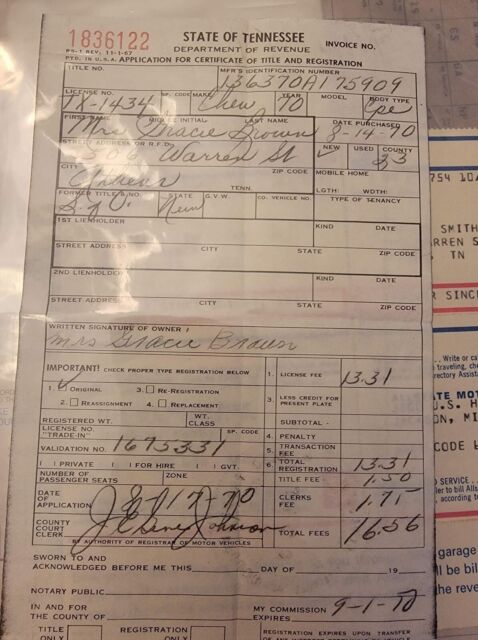 1836122
STATE OF TENNESSEE
DEPARTMENT OF REVENUE
INVOICE NO.
RS-1 REV. 11-1-67
PTD. IN U.S.A. APPLICATION FOR CERTIFICATE OF TITLE AND REGISTRATION
TITLE NO. MFR'S IDENTIFICATION NUMBER
136370A175909
LICENSE NO. SP. CODE MAKE YEAR MODEL BODY TYPE
TX-1434 Chev 70 Cpe
FIRST NAME MIDDLE INITIAL LAST NAME DATE PURCHASED
Mrs Gracie Brown 8-14-70
STREET ADDRESS OR R.F.D. NEW USED COUNTY
506 Warren St 33
CITY TENN. ZIP CODE MOBILE HOME
LGTH: WDTH:
FORMER TITLE & NO. STATE G.V.W. CO. VEHICLE NO. TYPE OF TENANCY
New
1ST LIENHOLDER KIND DATE
STREET ADDRESS CITY STATE ZIP CODE
2ND LIENHOLDER KIND DATE
STREET ADDRESS CITY STATE ZIP CODE
WRITTEN SIGNATURE OF OWNER
Mrs Gracie Brown
IMPORTANT! CHECK PROPER TYPE REGISTRATION BELOW
1. ORIGINAL 3. RE-REGISTRATION
2. REASSIGNMENT 4. REPLACEMENT
REGISTERED WT. WT. CLASS
LICENSE NO. "TRADE-IN" SP. CODE
VALIDATION NO. 1675331
PRIVATE FOR HIRE GVT.
NUMBER OF PASSENGER SEATS ZONE
DATE OF APPLICATION 8-17-70
COUNTY COURT CLERK
BY AUTHORITY OF REGISTRAR OF MOTOR VEHICLES
1. LICENSE FEE 13.31
3. LESS CREDIT FOR PRESENT PLATE
SUBTOTAL -
4. PENALTY
5. TRANSACTION FEE
6. TOTAL REGISTRATION 13.31
TITLE FEE 1.50
CLERKS FEE 1.75
TOTAL FEES 16.56
SWORN TO AND
ACKNOWLEDGED BEFORE ME THIS DAY OF 19
NOTARY PUBLIC
IN AND FOR
THE COUNTY OF
MY COMMISSION
EXPIRES 9-1-70
TITLE ONLY REGISTRATION ONLY
REGISTRATION EXPIRES UPON TRANSFER
754 10A
SMITH
TN
R SINC
Write or ca
traveling, che
ATE MOT
U.S. H
ON, MI
CODE
SERVICE
according t
garage
ll be bil
the rever